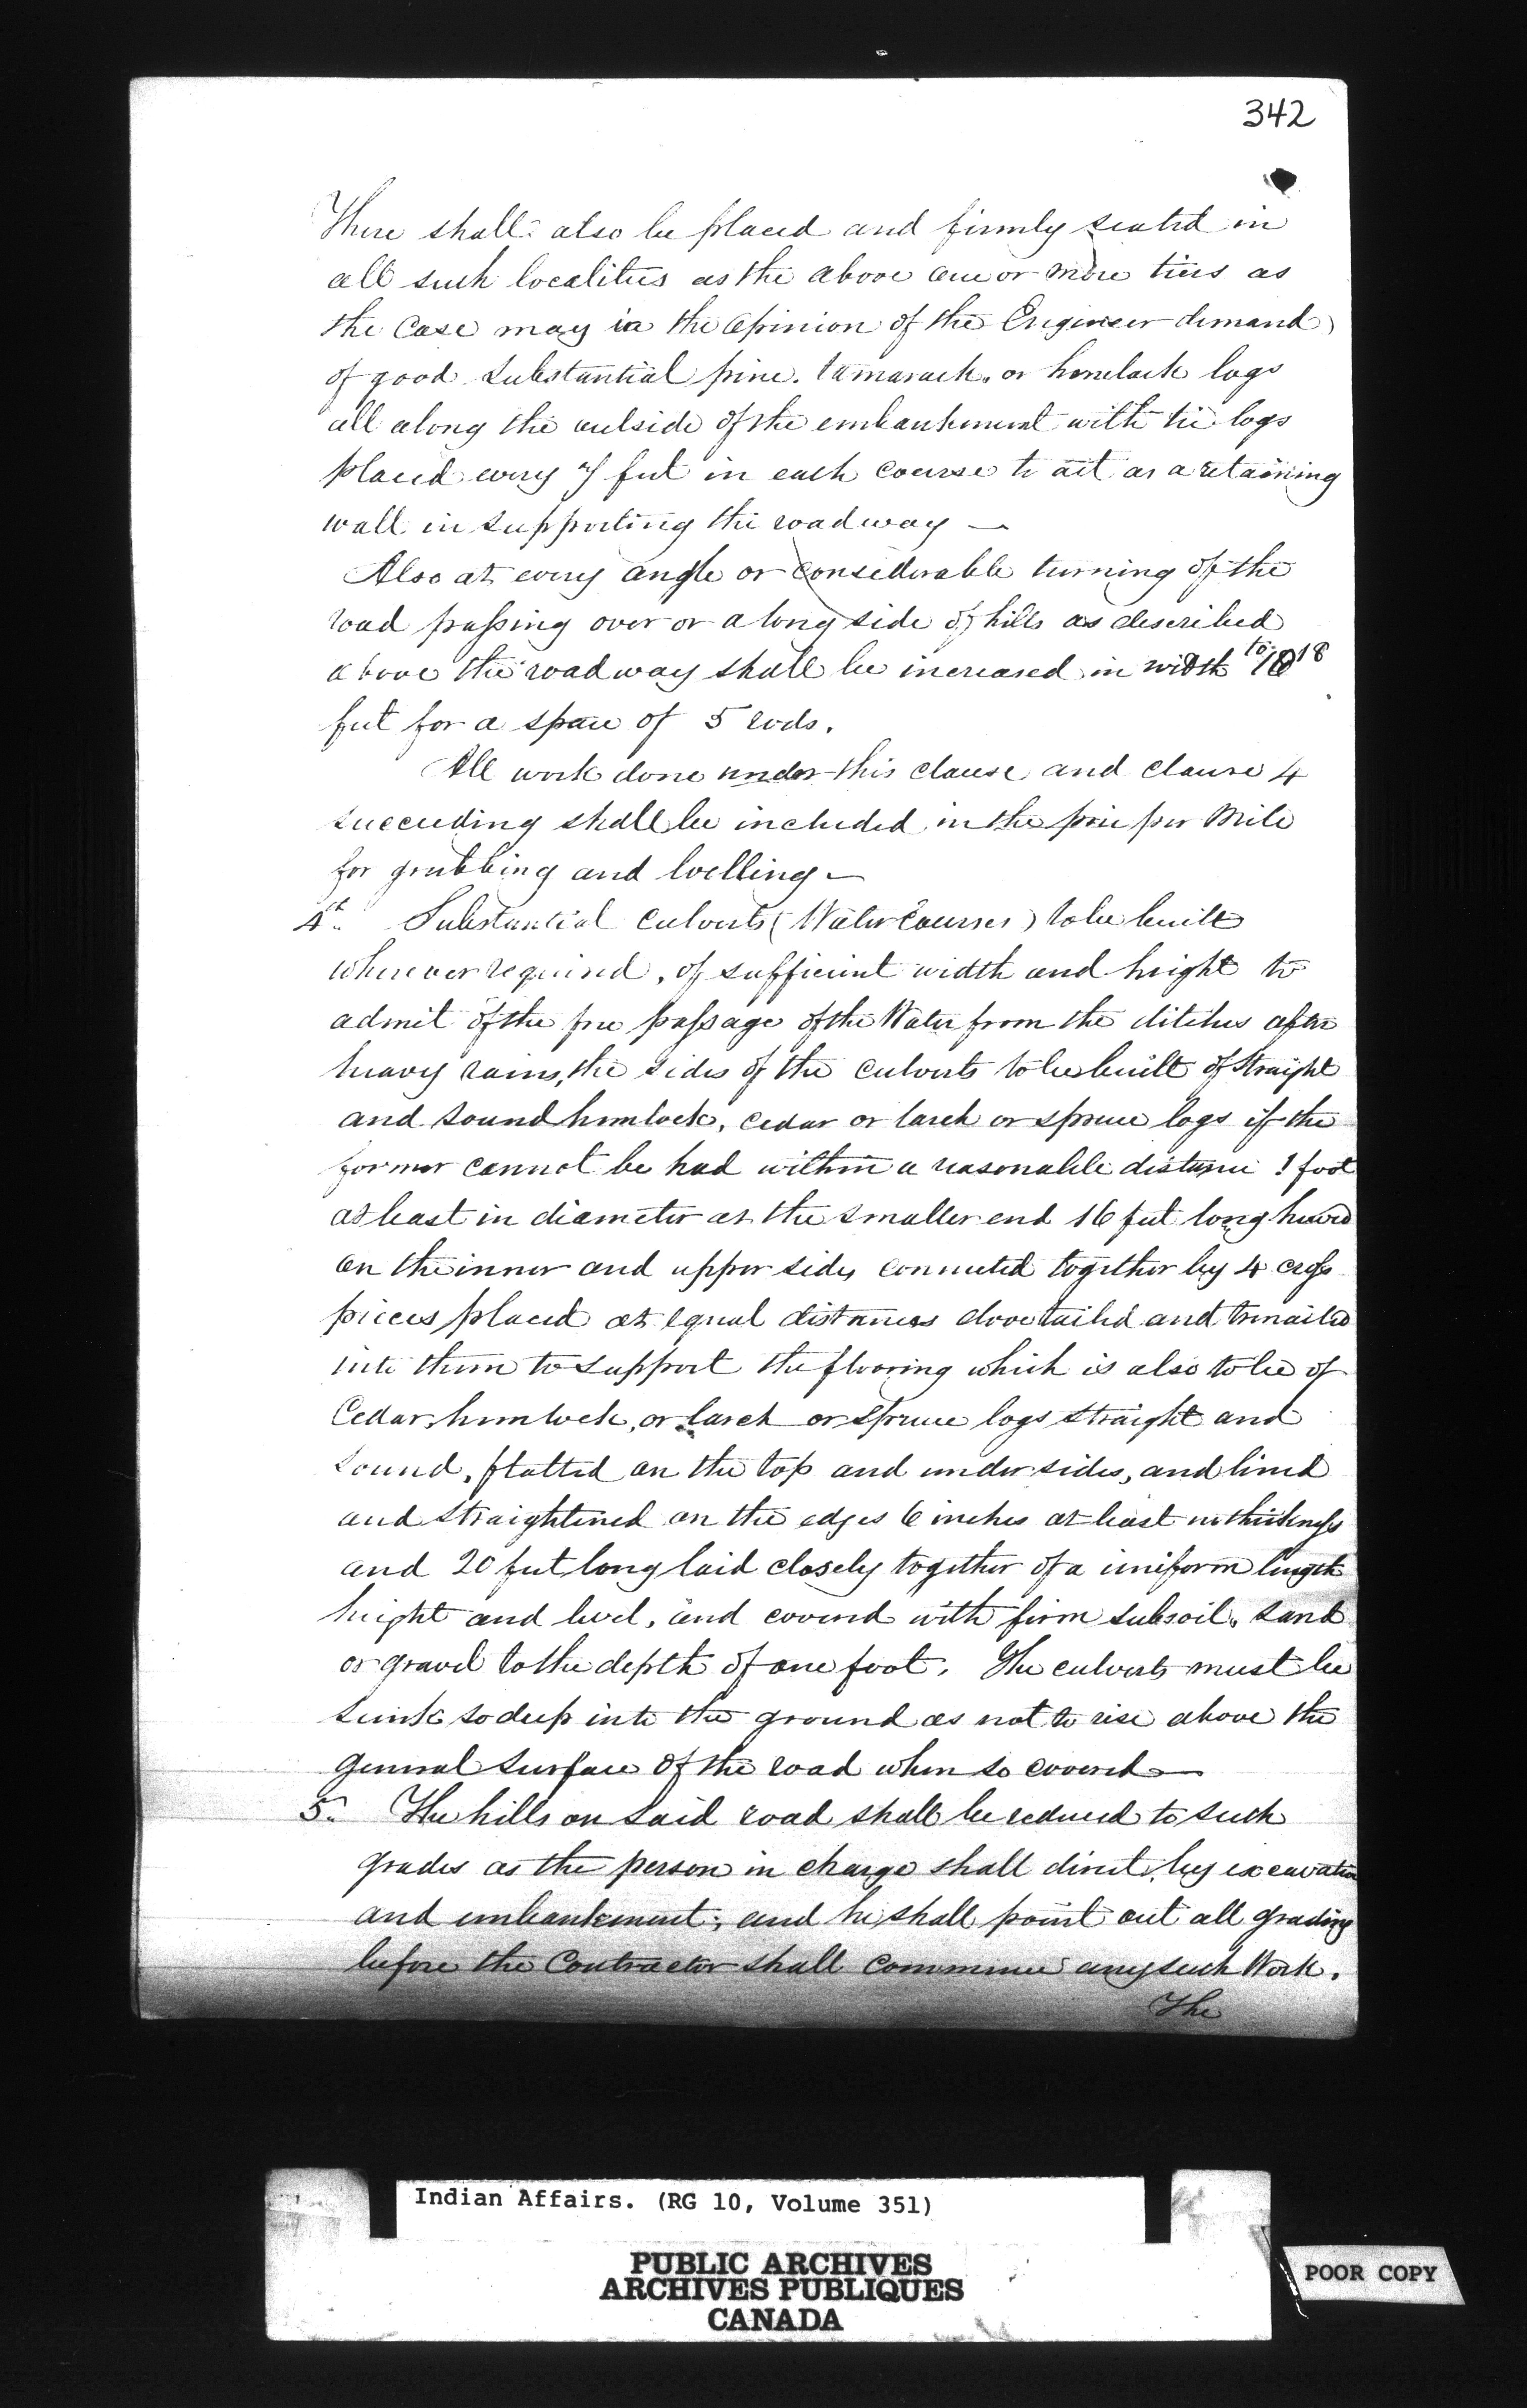 342
There shall also be placed and firmly seated in
all such localities as the above one or more tiers as
the Case may in the Opinion of the Engineer demand
of good substantial pine. tamarack, or hemlock logs
all along the outside of the embankment with tie logs
placed every 7 feet in each course to act as a retaining
wall in supporting the roadway —
Also at every angle or considerable turning of the
road passing over or along side of hills as described
above the roadway shall be increased in width to 18
feet for a space of 5 rods.
All work done under this clause and clause 4
succeeding shall be included in the price per Mile
for grubbing and levelling —
4th. Substantial Culverts (Water Courses) to be built
wherever required, of sufficient width and height to
admit of the free passage of the Water from the ditches after
heavy rains, the sides of the culverts to be built of straight
and sound hemlock, cedar or larch or spruce logs if the
former cannot be had within a reasonable distance 1 foot
at least in diameter at the smaller end 16 feet long hewed
on the inner and upper sides connected together by 4 cross
pieces placed at equal distances dovetailed and trenailed
into them to support the flooring which is also to be of
Cedar, hemlock, or larch or spruce logs straight and
sound, flatted on the top and under sides, and lined
and straightened on the edges 6 inches at least in thickness
and 20 feet long laid closely together of a uniform length
height and level, and covered with firm subsoil, sand
or gravel to the depth of one foot. The culverts must be
sunk so deep into the ground as not to rise above the
general surface of the road when so covered —
5. The hills on said road shall be reduced to such
grades as the person in charge shall direct, by excavation
and embankment; and he shall point out all grading
before the Contractor shall commence any such Work.
The
Indian Affairs. (RG 10, Volume 351)
PUBLIC ARCHIVES
ARCHIVES PUBLIQUES
CANADA
POOR COPY